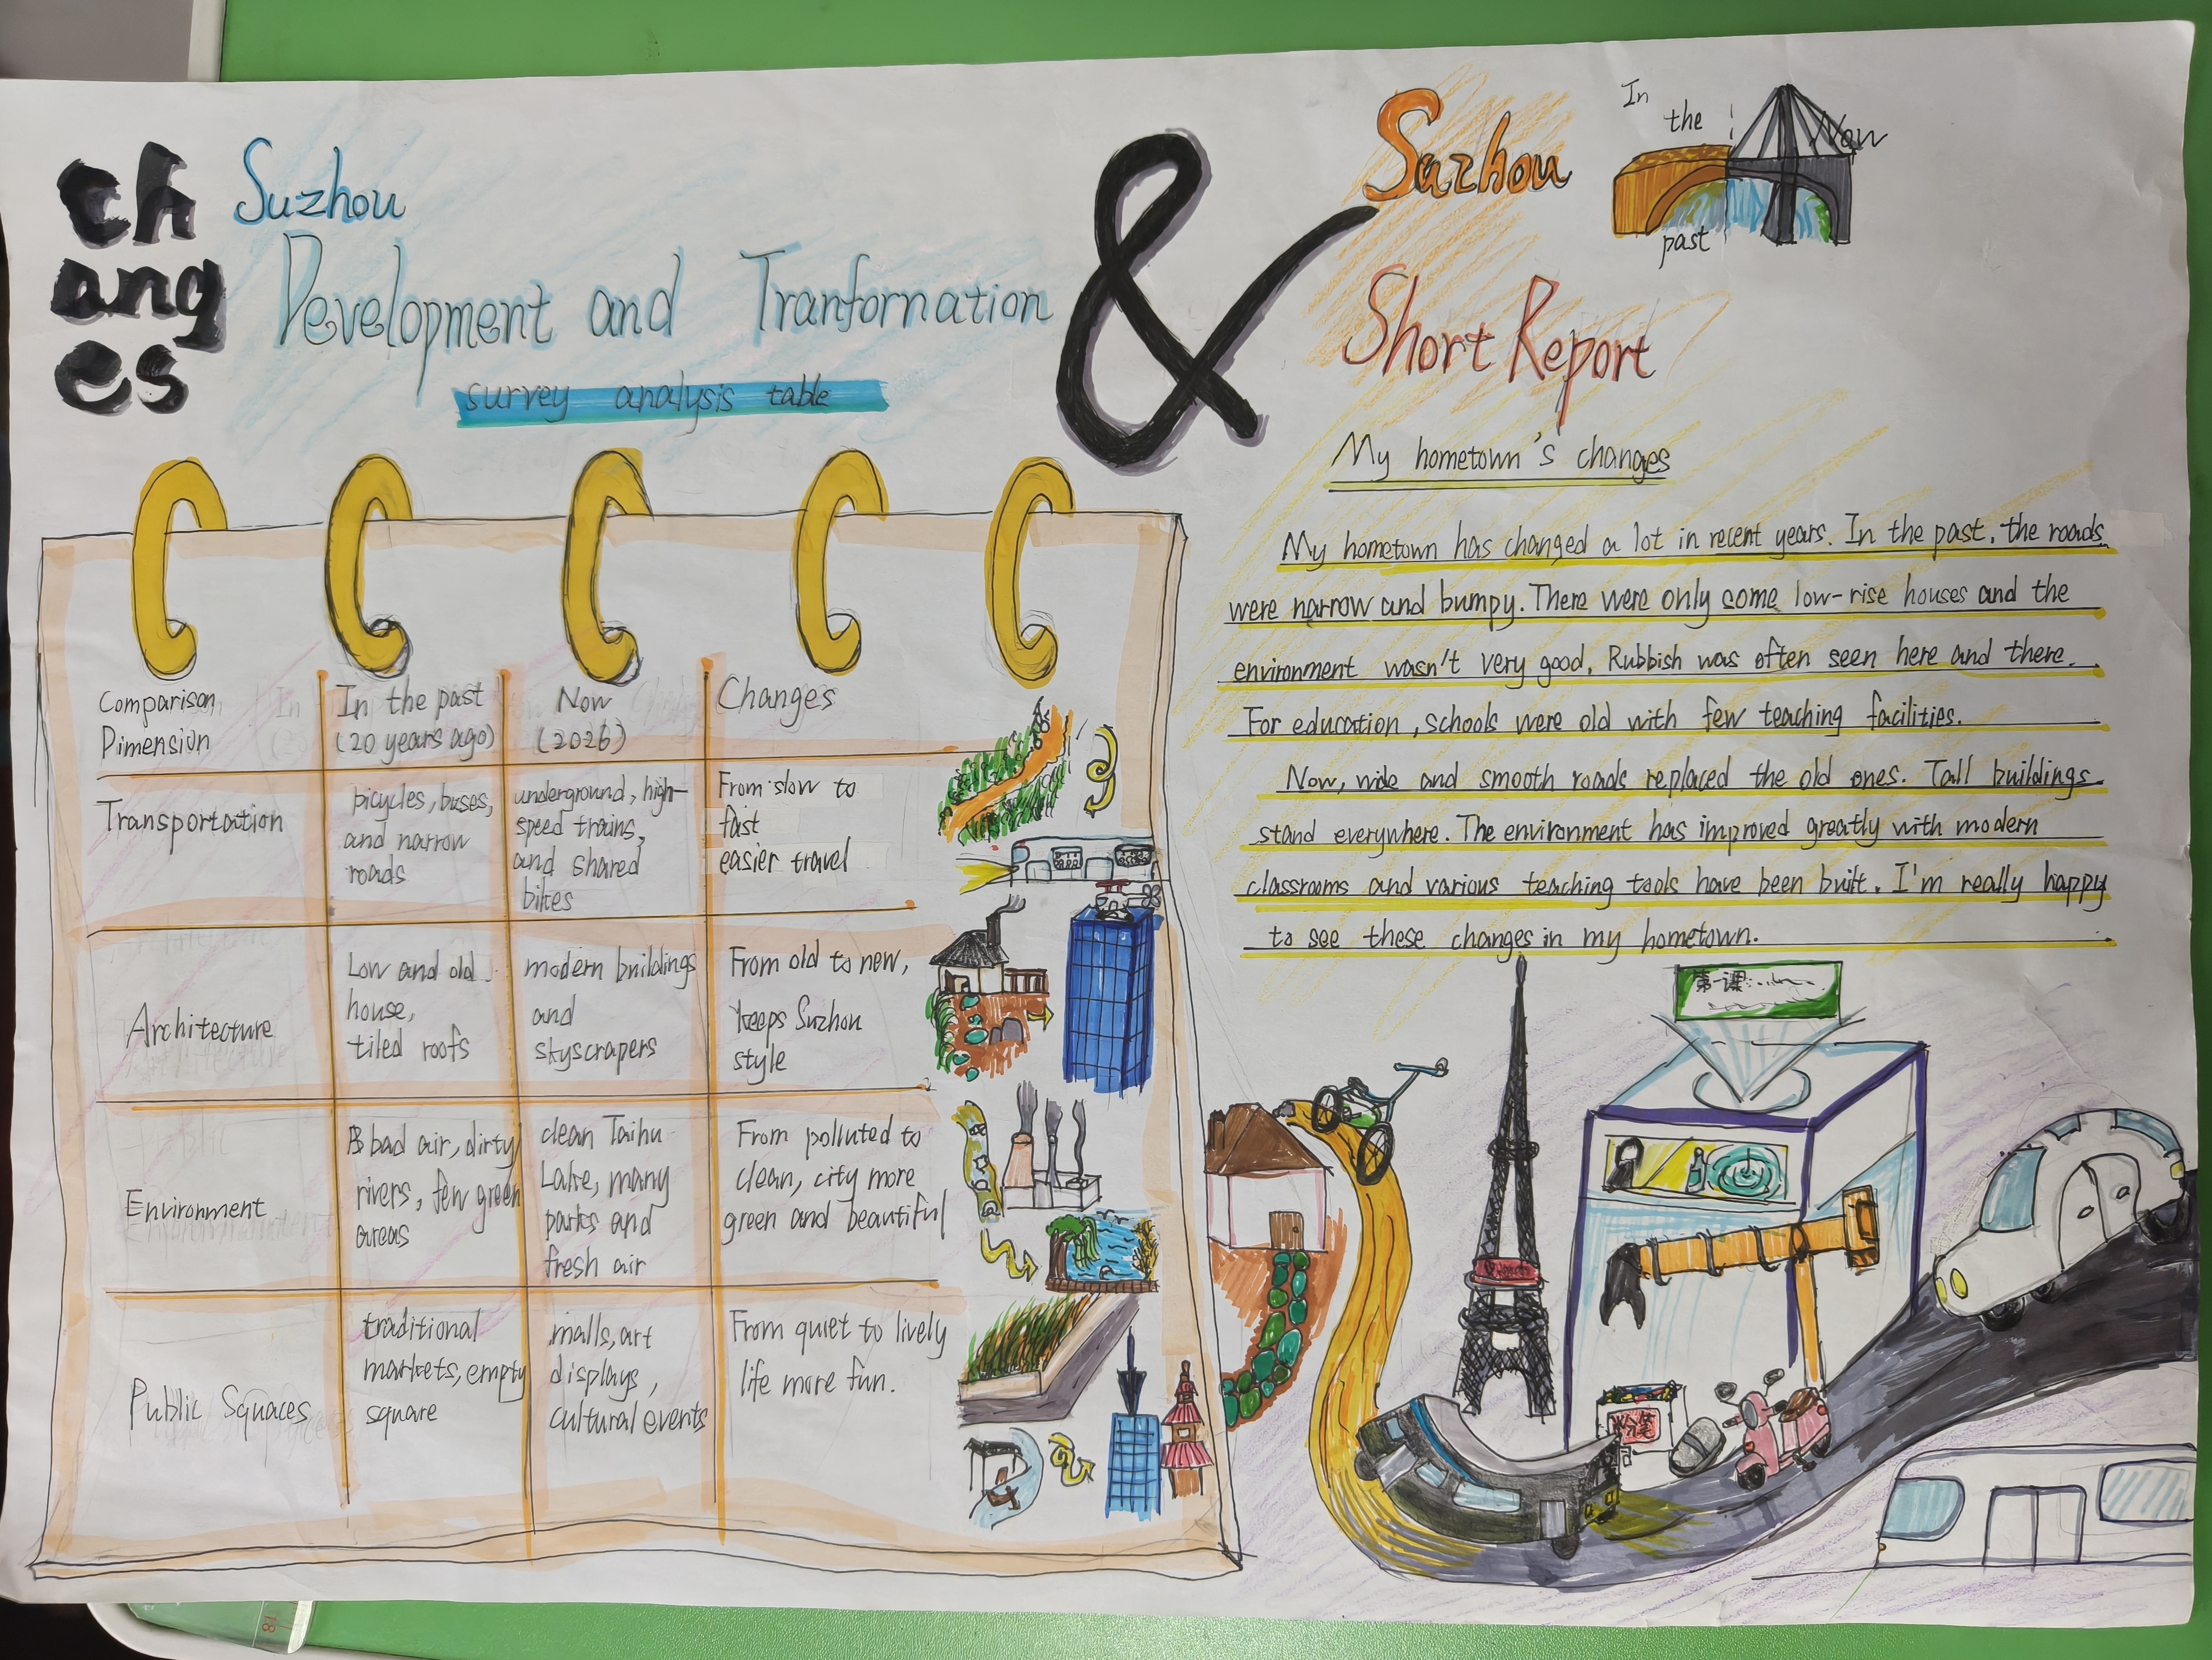 ch
ang
es
Suzhou
Development and Tranfornation
survey analysis table
&
Suzhou
In
the
past
Now
Short Report
My hometown's changes
My hometown has changed a lot in recent years. In the past, the roads
were narrow and bumpy. There were only some low-rise houses and the
environment wasn't very good. Rubbish was often seen here and there.
For education, schools were old with few teaching facilities.
Now, wide and smooth roads replaced the old ones. Tall buildings
stand everywhere. The environment has improved greatly with modern
classrooms and various teaching tools have been built. I'm really happy
to see these changes in my hometown.
Comparison
Dimension
In the past
(20 years ago)
Now
(2026)
Changes
Transportation
bicycles, buses,
and narrow
roads
underground, high-
speed trains,
and shared
bikes
From slow to
fast
easier travel
Architecture
Low and old
house,
tiled roofs
modern buildings
and
skyscrapers
From old to new,
keeps Suzhou
style
Environment
bad air, dirty
rivers, few green
areas
clean Taihu
Lake, many
parks and
fresh air
From polluted to
clean, city more
green and beautiful
Public Squaces
traditional
markets, empty
square
malls, art
displays,
cultural events
From quiet to lively
life more fun.
第一课:
粉笔
18